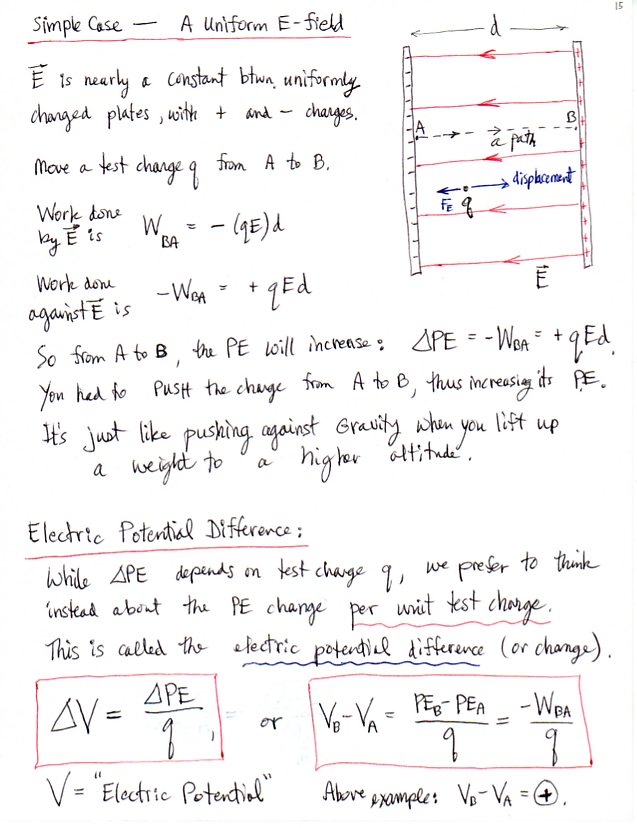 15
Simple Case — A Uniform E-field
E is nearly a constant btwn. uniformly
charged plates, with + and - charges.
Move a test charge q from A to B.
Work done
by E is W_BA = - (qE)d
Work done
against E is -W_BA = + qEd
d
A
B
a path
displacement
F_E
q
E
So from A to B, the PE will increase: ΔPE = -W_BA = + qEd.
You had to PUSH the charge from A to B, thus increasing its PE.
It's just like pushing against Gravity when you lift up
a weight to a higher altitude.
Electric Potential Difference:
While ΔPE depends on test charge q, we prefer to think
instead about the PE change per unit test charge.
This is called the electric potential difference (or change).
ΔV = ΔPE/q, or V_B - V_A = (PE_B - PE_A)/q = -W_BA/q
V = "Electric Potential" Above example: V_B - V_A = ⊕.